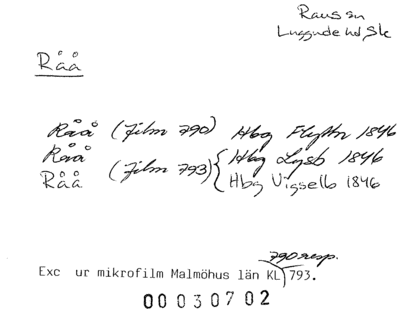 Raus sn
Luggude hd Sk
Råå
Råå (film 790) Hbg Flyttn 1846
Råå (film 793) { Hbg Lysb 1846
Råå Hbg Vigselb 1846
790 resp.
Exc ur mikrofilm Malmöhus län KL 793.
00030702